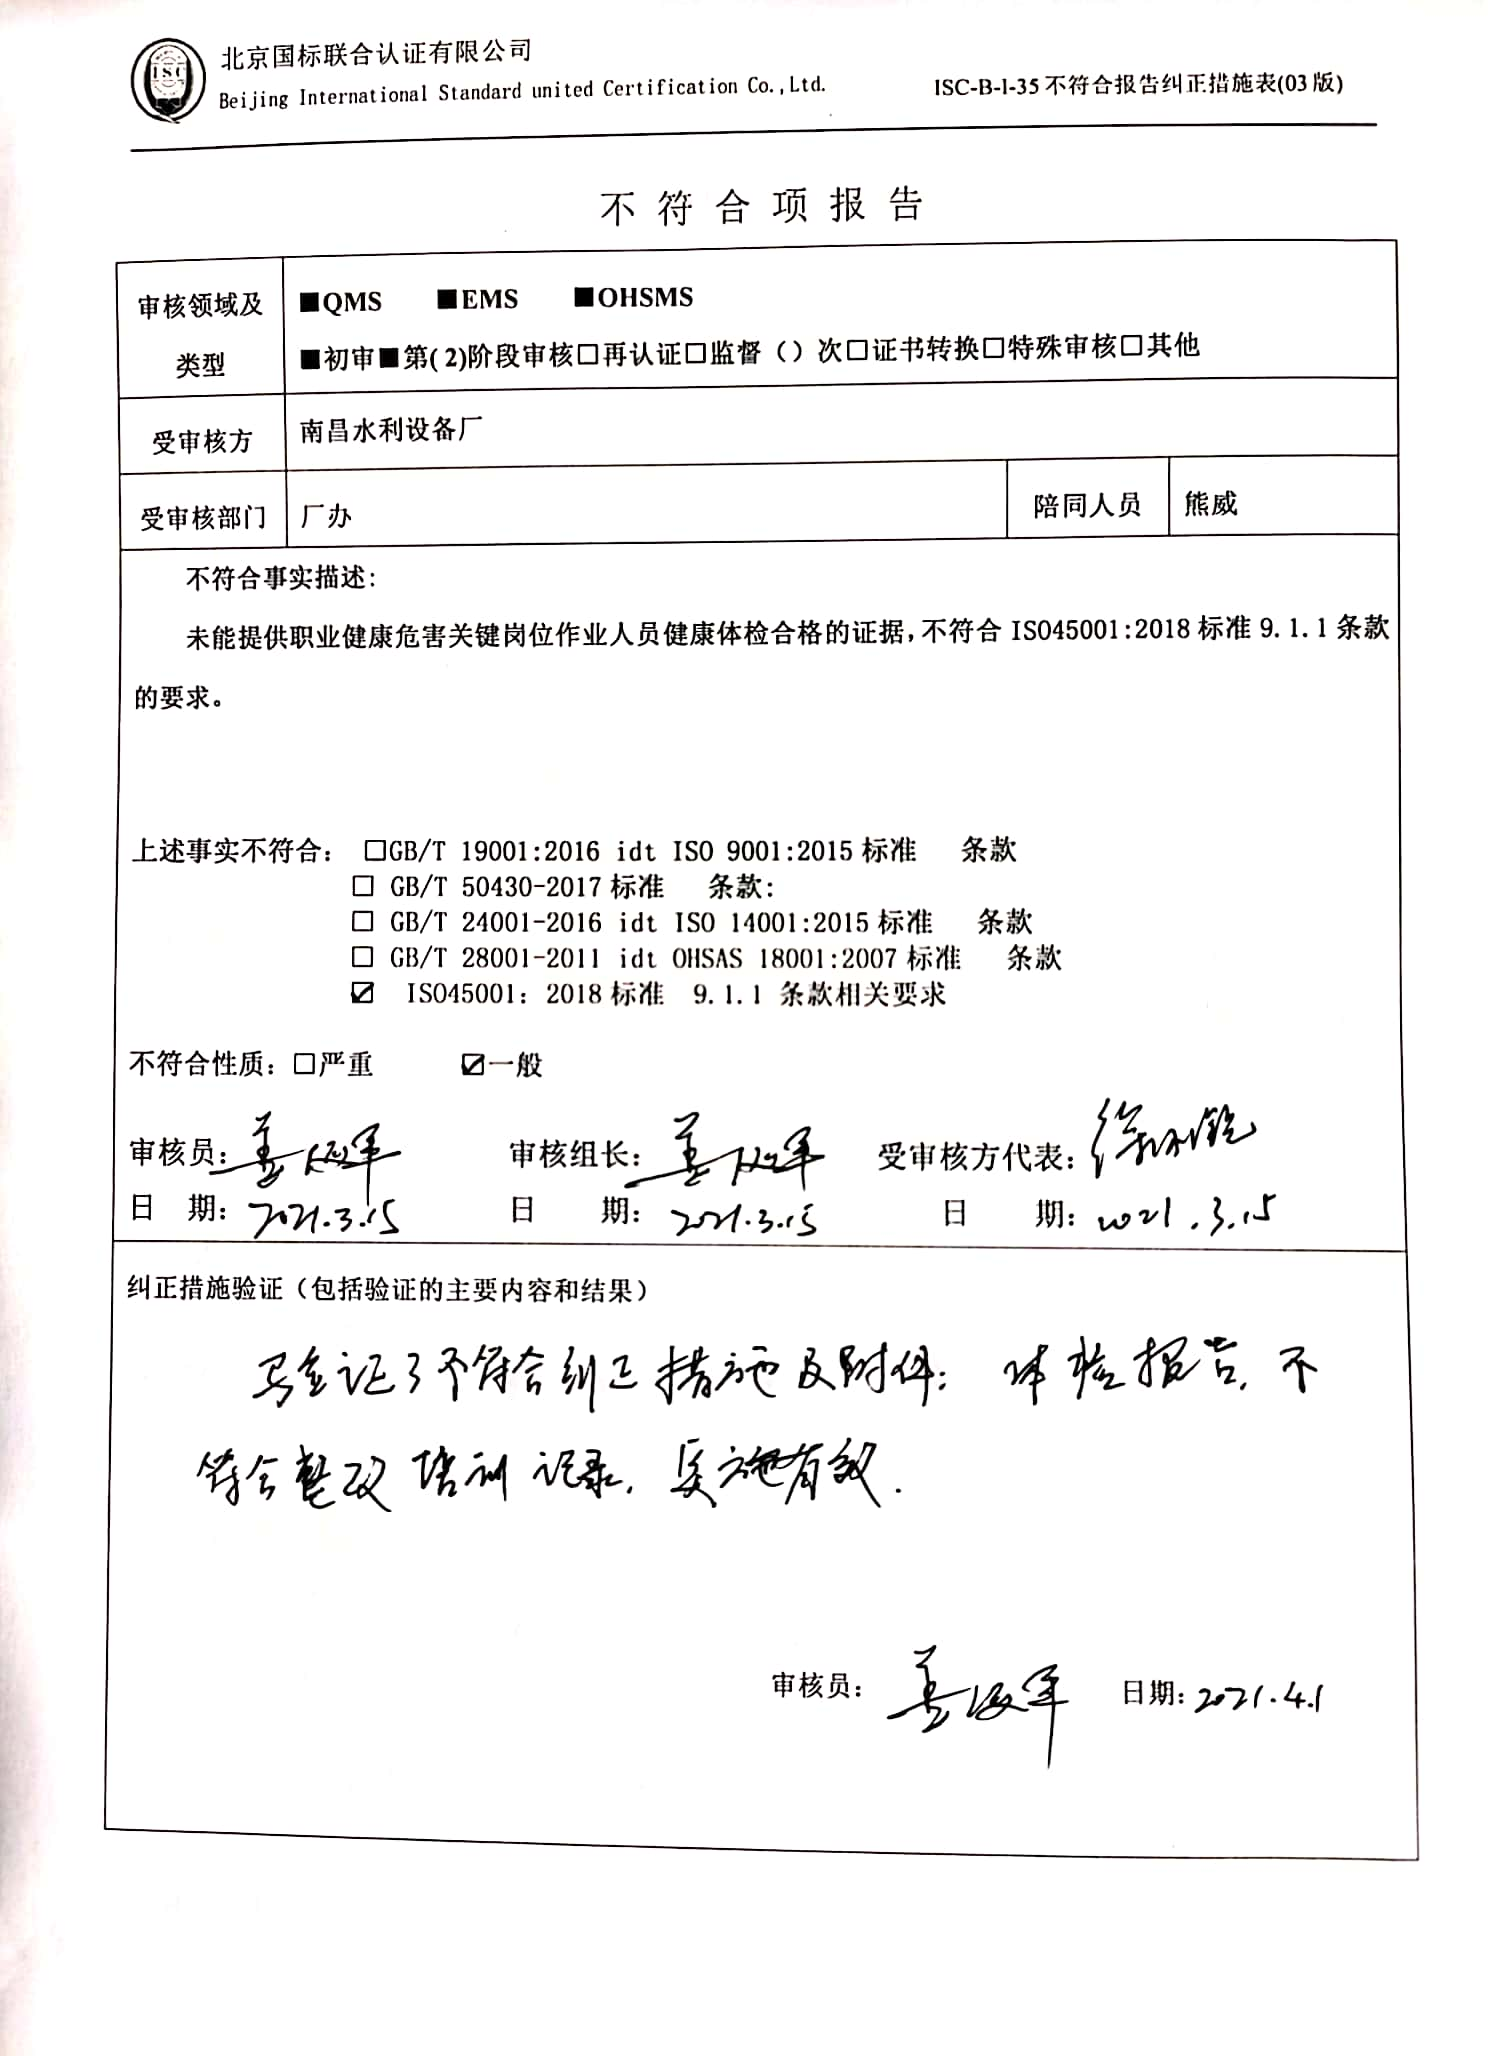 北京国标联合认证有限公司
Beijing International Standard united Certification Co.,Ltd.
ISC-B-I-35 不符合报告纠正措施表(03 版)
ISC
不符合项报告
审核领域及类型
■QMS ■EMS ■OHSMS
■初审■第( 2)阶段审核□再认证□监督（）次□证书转换□特殊审核□其他
受审核方 南昌水利设备厂
受审核部门 厂办 陪同人员 熊威
不符合事实描述:
未能提供职业健康危害关键岗位作业人员健康体检合格的证据,不符合 ISO45001:2018 标准 9.1.1 条款
的要求。
上述事实不符合: □GB/T 19001:2016 idt ISO 9001:2015 标准 条款
□ GB/T 50430-2017 标准 条款:
□ GB/T 24001-2016 idt ISO 14001:2015 标准 条款
□ GB/T 28001-2011 idt OHSAS 18001:2007 标准 条款
☑ ISO45001: 2018 标准 9.1.1 条款相关要求
不符合性质: □严重 ☑一般
审核员: 审核组长: 受审核方代表:
日 期: 2021.3.15 日 期: 2021.3.15 日 期: 2021.3.15
纠正措施验证（包括验证的主要内容和结果）
验证了不符合纠正措施及附件: 体检报告, 不
符合整改培训记录, 实施有效.
审核员: 日期: 2021.4.1